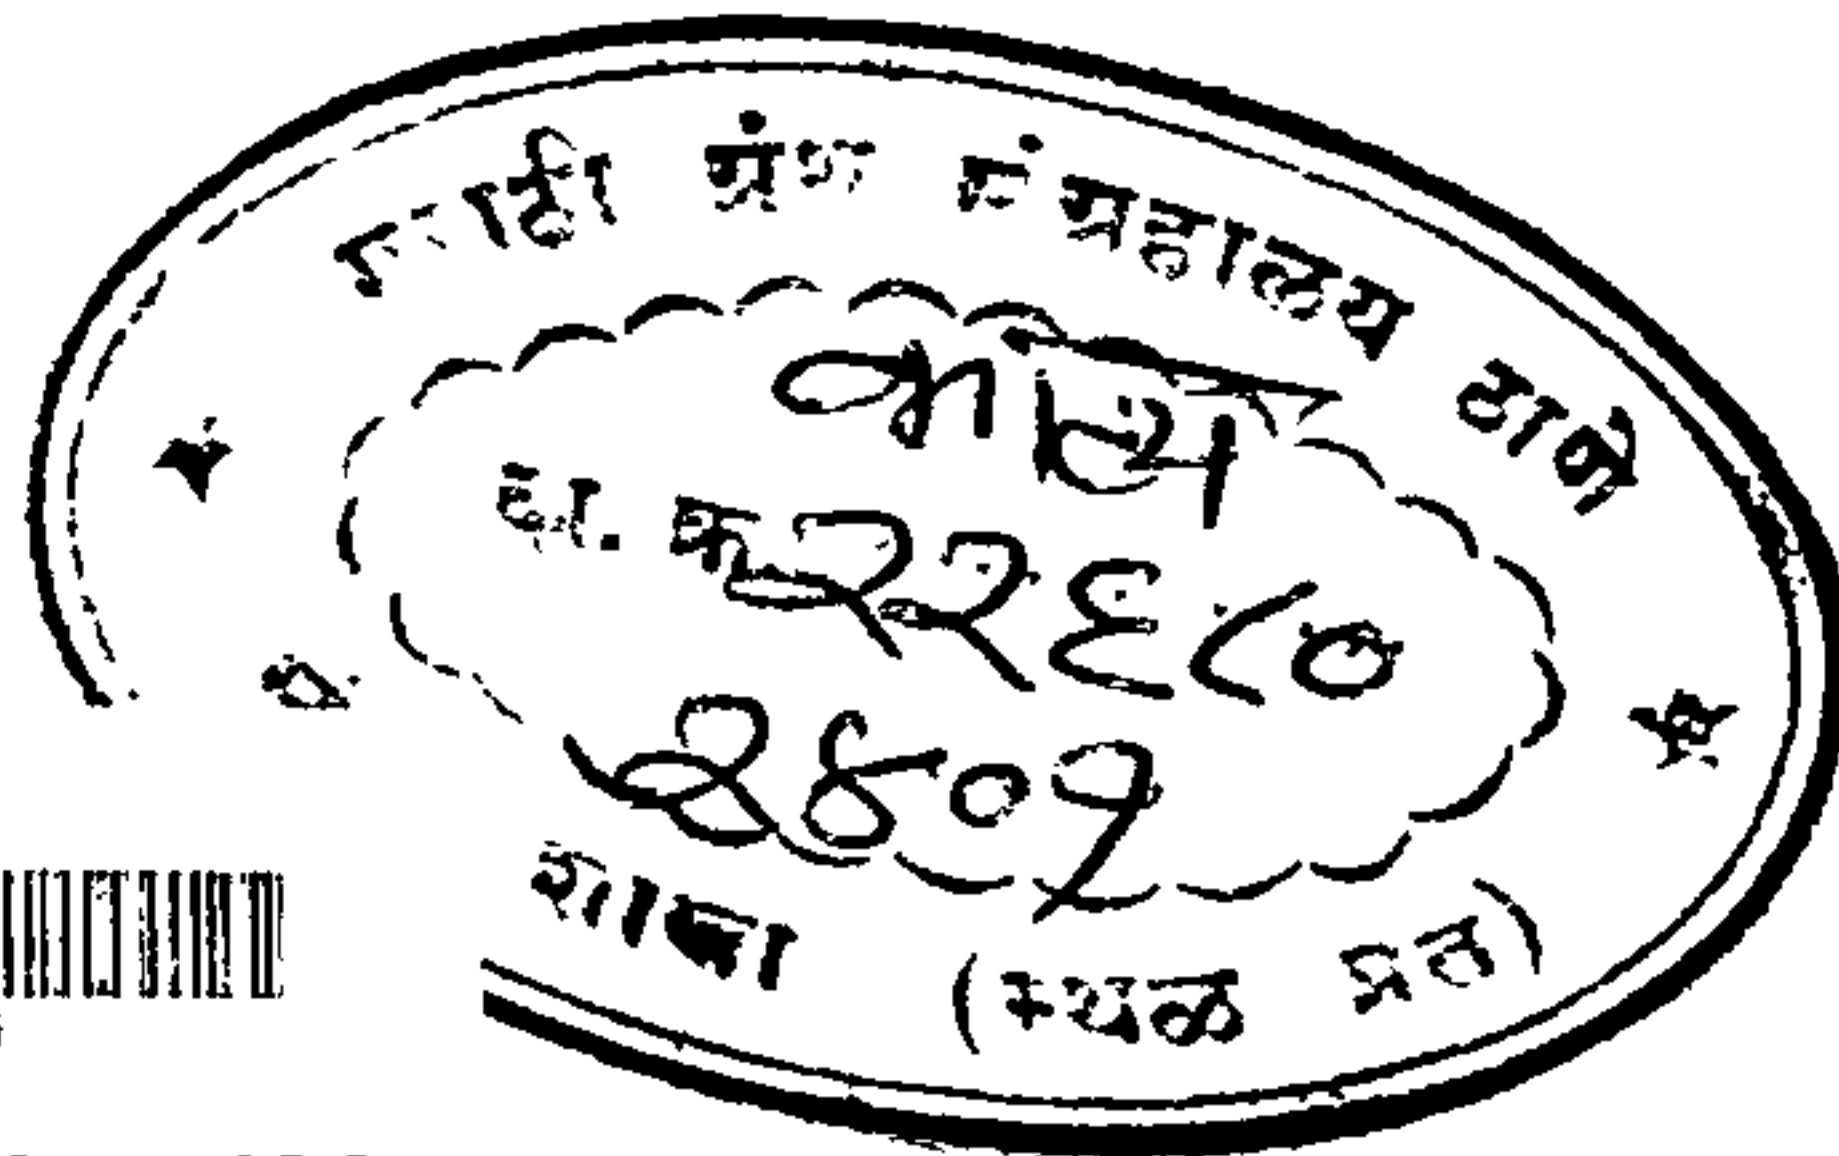 मराठी ग्रंथ संग्रहालय ठाणे
काव्य
दा. क्र. २२६८०
२४०१
शाखा (स्थळ प्रत)